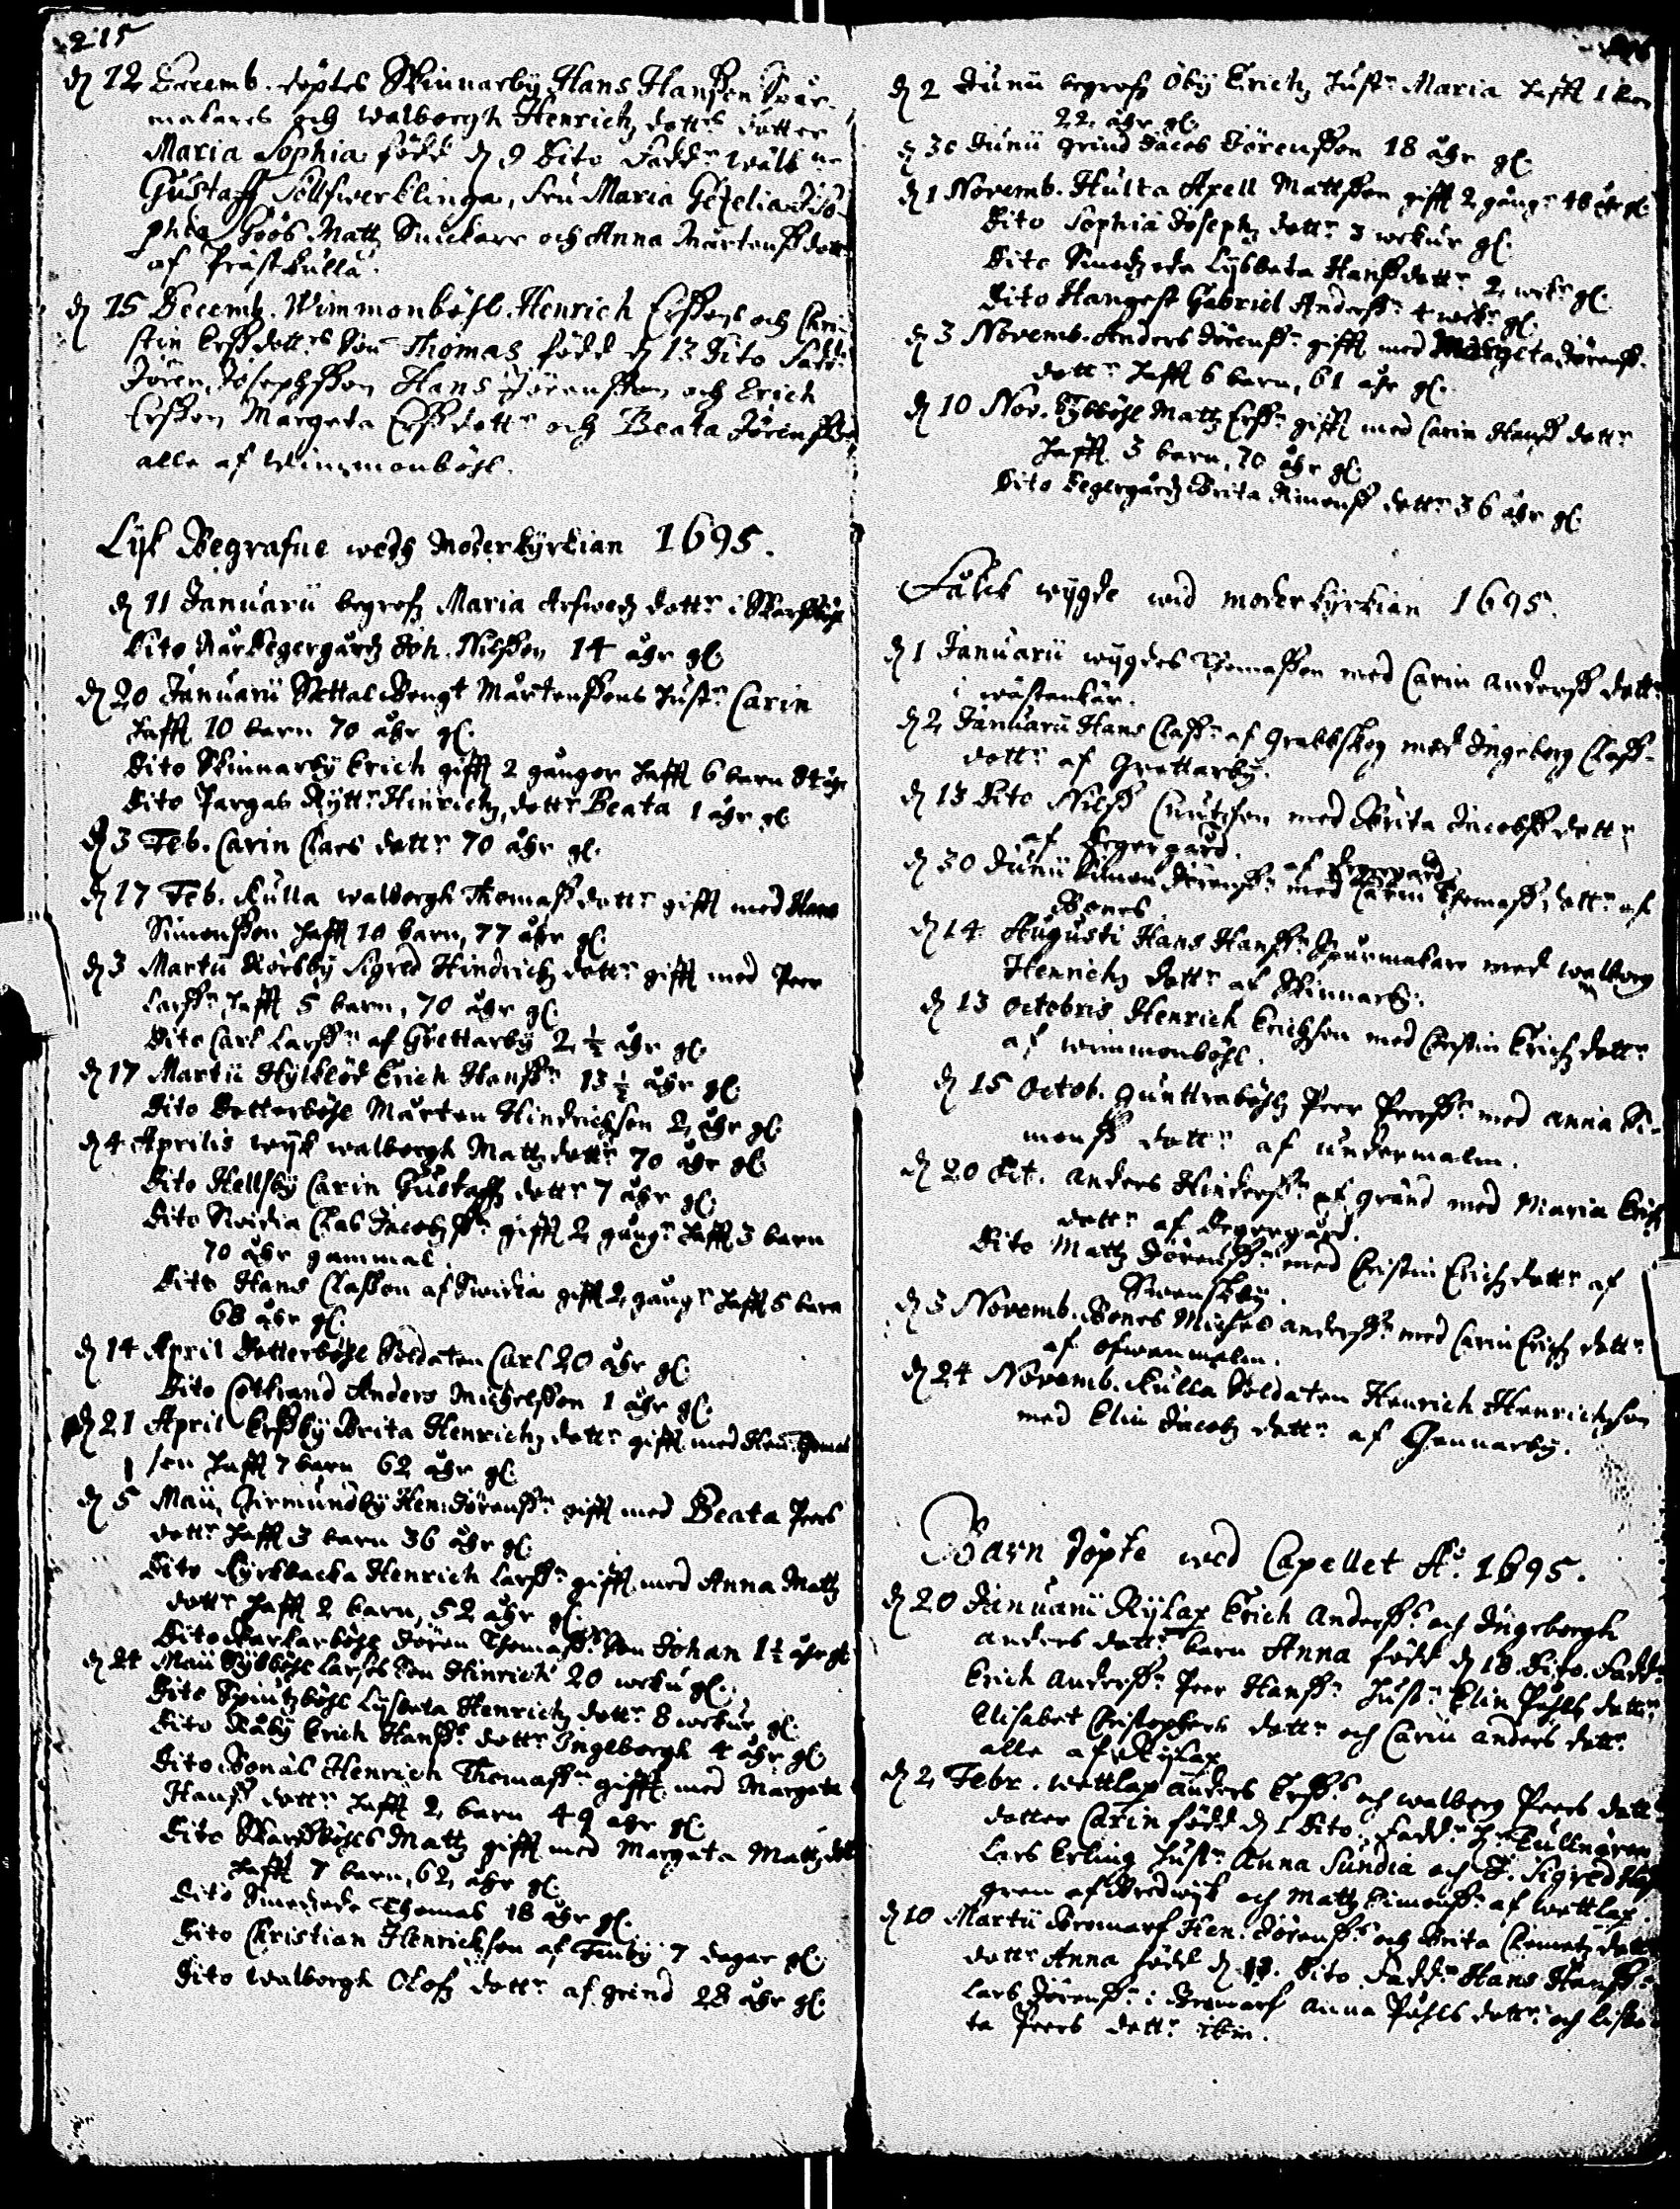 215
d 12 Decemb. döptes Skinnarby Hans Hanßon Spor-
makares och Walborgh Henrichz dott:s dotter
Maria Sophia född d 9 Dito Fadd:r Wälb:ne
Gustaff Silfwerklinga, Fru Maria Gezelia, Jso-
phia Göös Matz Snickare och Anna Mårtenßdott:r
af Prästkulla.
d 15 Decemb. Wimmonböhl. Henrich Erßons och Chri-
stin Erßdott:s Son Thomas född d 13 Dito Fadd:r
Jören Josephßon Hans Jörenßon och Erich
Erßon Margeta Erßdott:r och Beata Jörenßd:r
alla af Wimmonböhl.
Lijk Begrafne wedh Moderkyrkian 1695.
d 11 Januarii begrofz Maria Arfwedz dott:r i Skarsböhl
Dito Degergårdz Joh. Nilßon 14 åhr gl.
d 20 Januarii Bengt Mårtenßons hust:r Carin
hafft 10 barn 70 åhr gl.
Dito Skinnarby Erich gifft 2 gånger hafft 6 barn 84 åhr
Dito Pargas Rytt:r Hinrichz dott:r Beata 1 åhr gl.
d 3 Feb. Carin Clas dott:r 70 åhr gl.
d 17 Feb. Kulla Walborgh Thomaßdott:r gifft med Hans
Simonßon hafft 10 barn, 77 åhr gl.
d 3 Martii Rörsby Sigred Hindrichz dott:r gifft med Peer
Larß:n hafft 5 barn, 70 åhr gl.
Dito Carl Larß:n af Grettarby 2 ½ åhr gl.
d 17 Martii Hylklöö Erich Hanß:n 13 ½ åhr gl.
Dito Dotterböhl Mårten Hindrichson 2 åhr gl.
d 4 Aprilis Wijk Walborgh Matz dott:r 70 åhr gl.
Dito Hellsby Carin Gustaffz dott:r 7 åhr gl.
Dito Clas Jacobß:n gifft 2 gång:r hafft 3 barn
70 åhr gammal.
Dito Hans Claßon af gifft 2 gång:r hafft 5 barn
68 åhr gl.
d 14 April Dotterböhl Soldaten Carl 20 åhr gl.
Dito Anders Michelßon 1 åhr gl.
d 21 April Erßby Brita Henrichz dott:r gifft med Hen: Thomas
son hafft 7 barn 62 åhr gl.
d 5 Maii Germundby Hen: Jörenß:n gifft med Beata Peers
dott:r hafft 3 barn 36 åhr gl.
Dito Kyrkbacka Henrich Larß:n gifft med Anna Matz
dott:r hafft 2 barn, 52 åhr gl.
Dito Jören Thomaß:s Son Johan 1 ½ åhr gl.
d 24 Maii Nybböhl Larses Son Hinrich 20 weku gl.
Dito Lysbeta Henrichz dott:r 8 wekur gl.
Dito Råby Erich Hanß:s dott:r Jngeborgh 4 åhr gl.
Dito Bonäs Henrich Thomaß:n gifft med Margeta
Hanß dott:r hafft 2 barn 49 åhr gl.
Dito Skarsböhls Matz gifft med Margeta Matz dott
hafft 7 barn, 62 åhr gl.
Dito Smedzede Thomas 18 åhr gl.
Dito Christian Henrichson af Finby 7 dagar gl.
Dito Walborgh Olofz dott:r af grind 28 åhr gl.
d 2 Junii begrofz Öby Erichz hust:r Maria hafft 1 barn
22 åhr gl.
d 30 Junii Grind Jacob Jörenßon 18 åhr gl.
d 1 Novemb. Hulta Axell Mattßon gifft 2 gång:r 48 åhr gl.
Dito Sophia Josephz dott:r 3 wekur gl.
Dito Smedzede Lysbeta Hanßdott:r 2 wek:r gl.
Dito Hangest Gabriel Anderß:n 4 wek:r gl.
d 3 Novemb. Anders Jörenß:n gifft med Margeta Jörenß-
dott:r hafft 6 barn, 61 åhr gl.
d 10 Nov. Nybböhl Matz Erß:n gifft med Carin Hanß dott:r
hafft 3 barn, 70 åhr gl.
Dito Degergårdz Brita Simonß dott:r 36 åhr gl.
Fålck wygde wid moderkyrkian 1695.
d 1 Januarii wygdes Thomaßon med Carin Anderß dott:r
i wästankär.
d 2 Januarii Hans Claß:n af Grabbskog med Jngeborg Claß-
dott:r af Grettarby.
d 13 Dito Nilß Cnutson med Brita Jacobß dott:r
af Degergård.
af Degergård
d 30 Junii Simon Jörenß:n med Carin Thomaß dott:r af
Bonäs.
d 14 Augusti Hans Hanß:n Spormakare med Walborg
Henrichz dott:r af Skinnarby.
d 13 Octobris Henrich Erichson med Cherstin Erichz dott:r
af wimmonböhl.
d 15 Octob. Gunttraböhlz Peer Peerß:n med Anna Si-
monß dott:r af undermalm.
d 20 Oct. Anders Hinderß:n af grind med Maria Erichz
dott:r af Degergård.
Dito Matz Jörenß:n med Cristin Erichz dott:r af
Swenskby.
d 3 Novemb. Bonäs Michel anderß:n med Carin Erichz dott:r
af ofwanmalm.
d 24 Novemb. Kulla Soldaten Henrich Henrichson
med Elin Jacobz dott:r af Gennarby.
Barn döpte wed Capellet A:o 1695.
d 20 Januarii Rylax Erich Anderß:s och Jngeborgh
Anders dott:s barn Anna född d 18 Dito. Fadd:r
Erich Anderß:n Peer Hanß:n hust:r Elin Påhls dott:r
Elisabet Christophers dott:r och Carin Anders dott:r
alla af Rylax
d 2 Febr. wettlax anders Erß:s och walborg Peers dott:s
dotter Carin född d 1 Dito, Fadd:r
Lars Erling hust:r Anna Sundia och J. Sigred
gren af Bredwijk och Matz Simonß:n af wettlax.
d 10 Martii Bromarf Hen: Jörenß:s och Brita Clemetz dott:s
dott:r Anna född d Dito Fadd:r Hans Hanß:n
Lars Jörenß:n i Bromarf Anna Påhls dott:r och Lisbe-
ta Peers dott:r ibm.